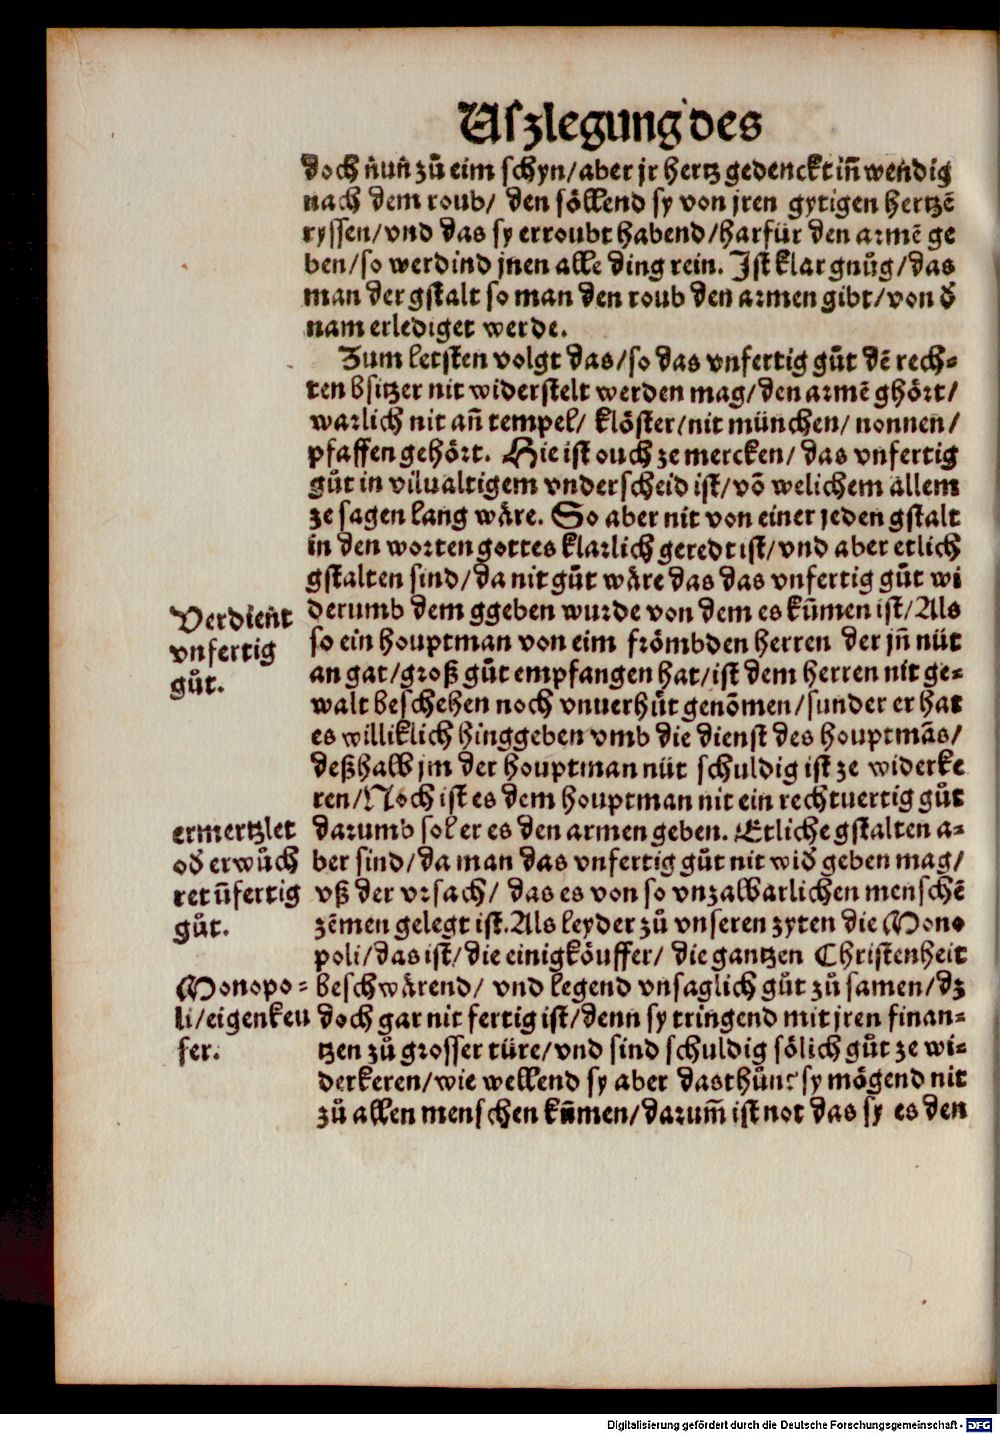 Uſzlegung des
doch nun zuͦ eim ſchyn/ aber jr hertz gedenckt iñwendig
nach dem roub/ den ſöllend ſy von jren gytigen hertzē
ryſſen/ vnd das ſy erroubt habend/ harfür den armē ge
ben/ ſo werdind jnen alle ding rein. Iſt klar gnuͦg/ das
man der gſtalt ſo man den roub den armen gibt/ von d̓
nam erlediget werde.
Zum letſten volgt das/ ſo das vnfertig guͦt dē rech⸗
ten bſitzer nit widerſtelt werden mag/ den armē ghört/
warlich nit añ tempel/ klöſter/ nit münchen/ nonnen/
pfaffen gehört. Hie iſt ouch ze mercken/ das vnfertig
guͦt in vilualtigem vnderſcheid iſt/ vō welichem allem
ze ſagen lang wäre. So aber nit von einer jeden gſtalt
in den worten gottes klarlich geredt iſt/ vnd aber etlich
gſtalten ſind/ da nit guͦt wäre das das vnfertig guͦt wi
derumb dem ggeben wurde von dem es kum̄en iſt/ Als
ſo ein houptman von eim frömbden herren der jñ nüt
an gat/ groß guͦt empfangen hat/ iſt dem herren nit ge⸗
walt beſchehen noch vnuerhüt genōmen/ ſunder er hat
es williklich hinggeben vmb die dienſt des houptmās/
deßhalb jm der houptman nüt ſchuldig iſt ze widerke
ren/ Noch iſt es dem houptman nit ein rechtuertig guͦt
darumb ſol er es den armen geben. Etliche gſtalten a⸗
ber ſind/ da man das vnfertig guͦt nit wid̓ geben mag/
vß der vrſach/ das es von ſo vnzalbarlichen menſchē
zēmen gelegt iſt. Als leyder zuͦ vnſeren zyten die Mono
poli/ das iſt/ die einigköuffer/ die gantzen Chriſtenheit
beſchwärend/ vnd legend vnſaglich guͦt zuͦ ſamen/ dz
doch gar nit fertig iſt/ denn ſy tringend mit jren finan⸗
tzen zuͦ groſſer türe/ vnd ſind ſchuldig ſölich guͦt ze wi⸗
derkeren/ wie wellend ſy aber das thuͦn: ſy mögend nit
zuͦ allen menſchen kum̄en/ darum̄ iſt not das ſy es den
Verdient
vnfertig
guͦt.
ermertzlet
od̓ erwuͦch
ret ūfertig
guͦt.
Monopo⸗
li/ eigenkeu
fer.
Digitalisierung gefördert durch die Deutsche Forschungsgemeinschaft - DFG